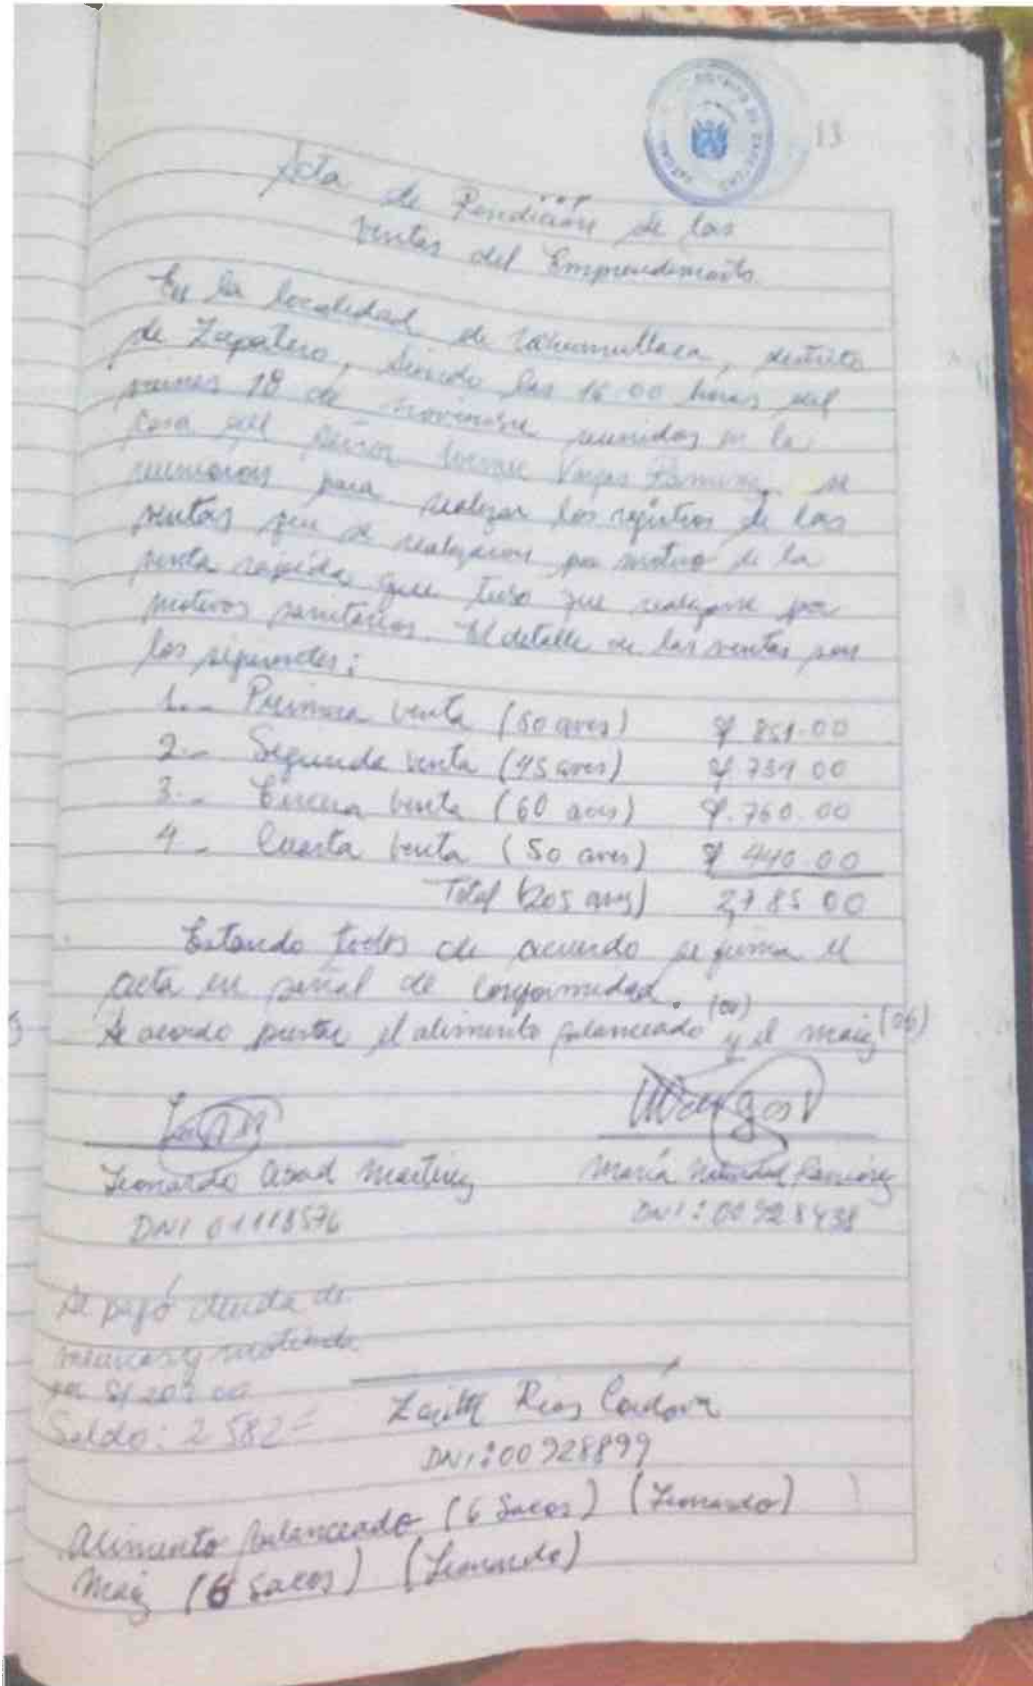 13
Acta de Rendición de las
ventas del Emprendimiento
En la localidad de, distrito
de Zapatero, siendo las 16:00 horas del
18 de noviembre reunidos en la
casa del señor Vargas Ramírez, se
para realizar los registros de las
ventas que se realizaron por motivo de la
venta rápida que tuvo que realizarse por
motivos sanitarios. El detalle de las ventas son
los siguientes:
1.- Primera venta (50 aves) S/ 851.00
2.- Segunda venta (45 aves) S/ 734.00
3.- Tercera venta (60 aves) S/. 760.00
4.- Cuarta venta (50 aves) S/ 440.00
Total (205 aves) 2,785.00
Estando todos de acuerdo se firma el
acta en señal de conformidad.
Se acordo prestar el alimento balanceado (06) y el maiz (06)
Leonardo Asad Martinez
María Ramírez
DNI 01118576
DNI: 00928438
Se pagó deuda de
por S/ 203.00
Saldo: 2 582=
Rios Cordova
DNI: 00928899
Alimento balanceado (6 Sacos) (Leonardo)
Maiz (6 Sacos) (Leonardo)